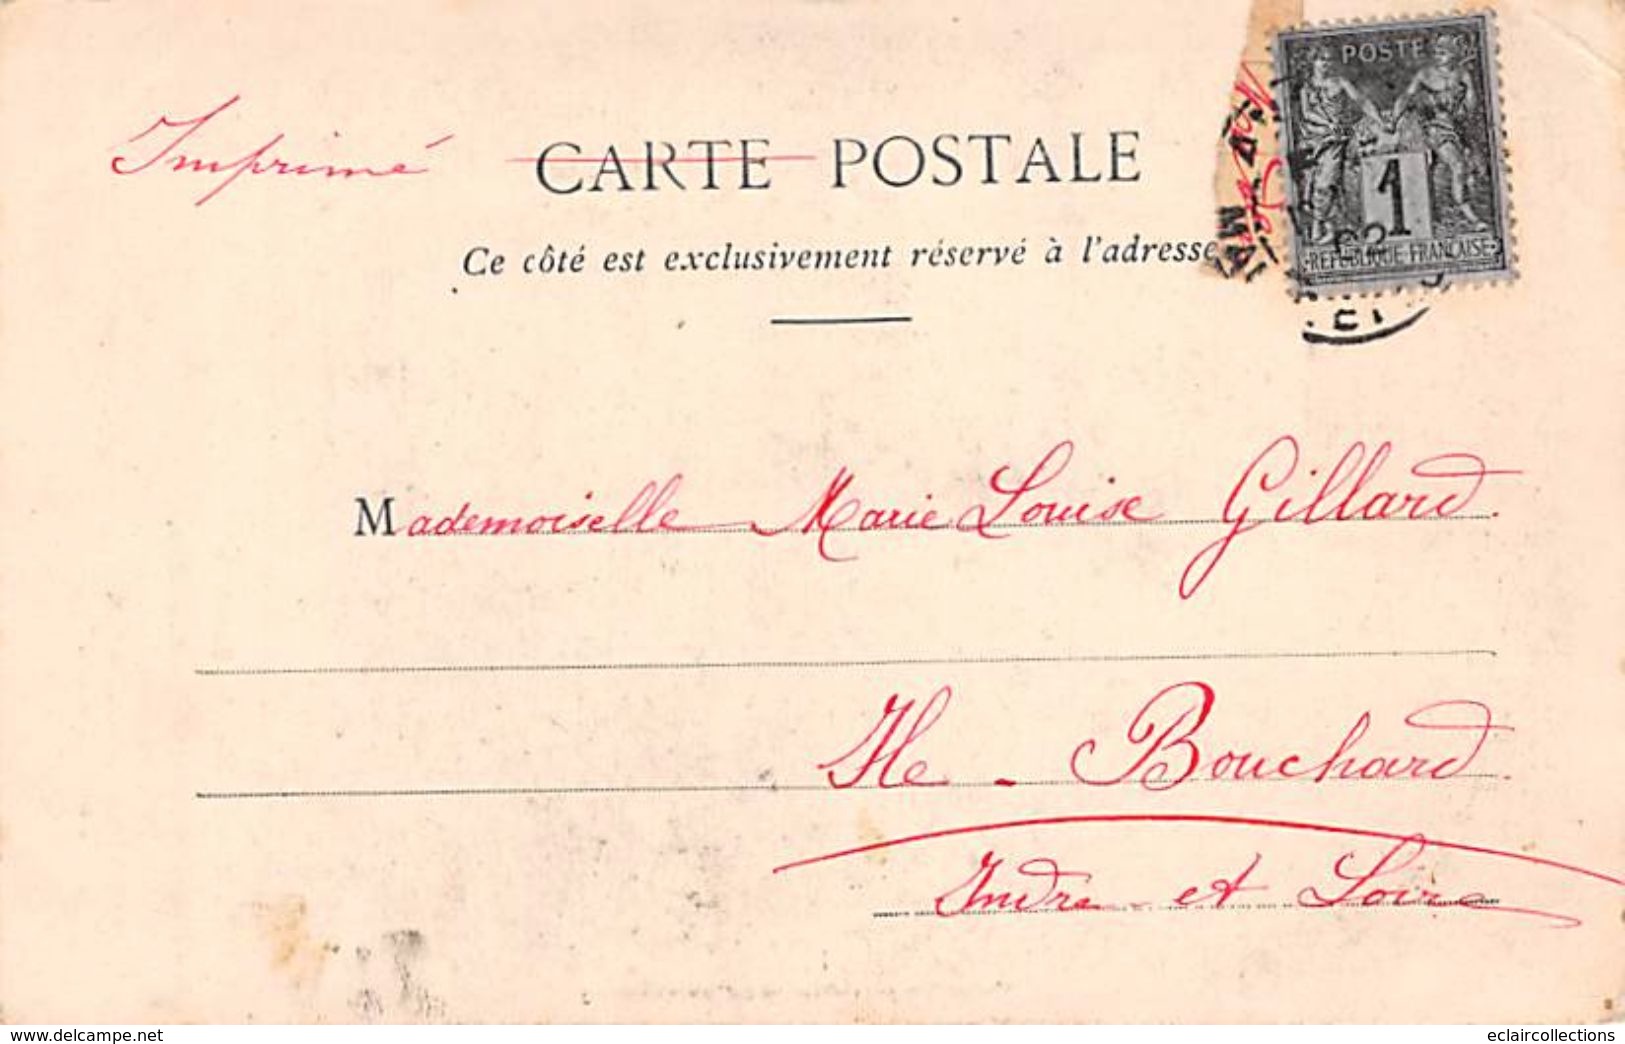 POSTES
Imprimé
CARTE POSTALE
1
Ce côté est exclusivement réservé à l'adresse
REPUBLIQUE FRANÇAISE
Mademoiselle Marie Louise Gillard.
Ile - Bouchard.
Indre et Loire
delcampe.net
eclaircollections